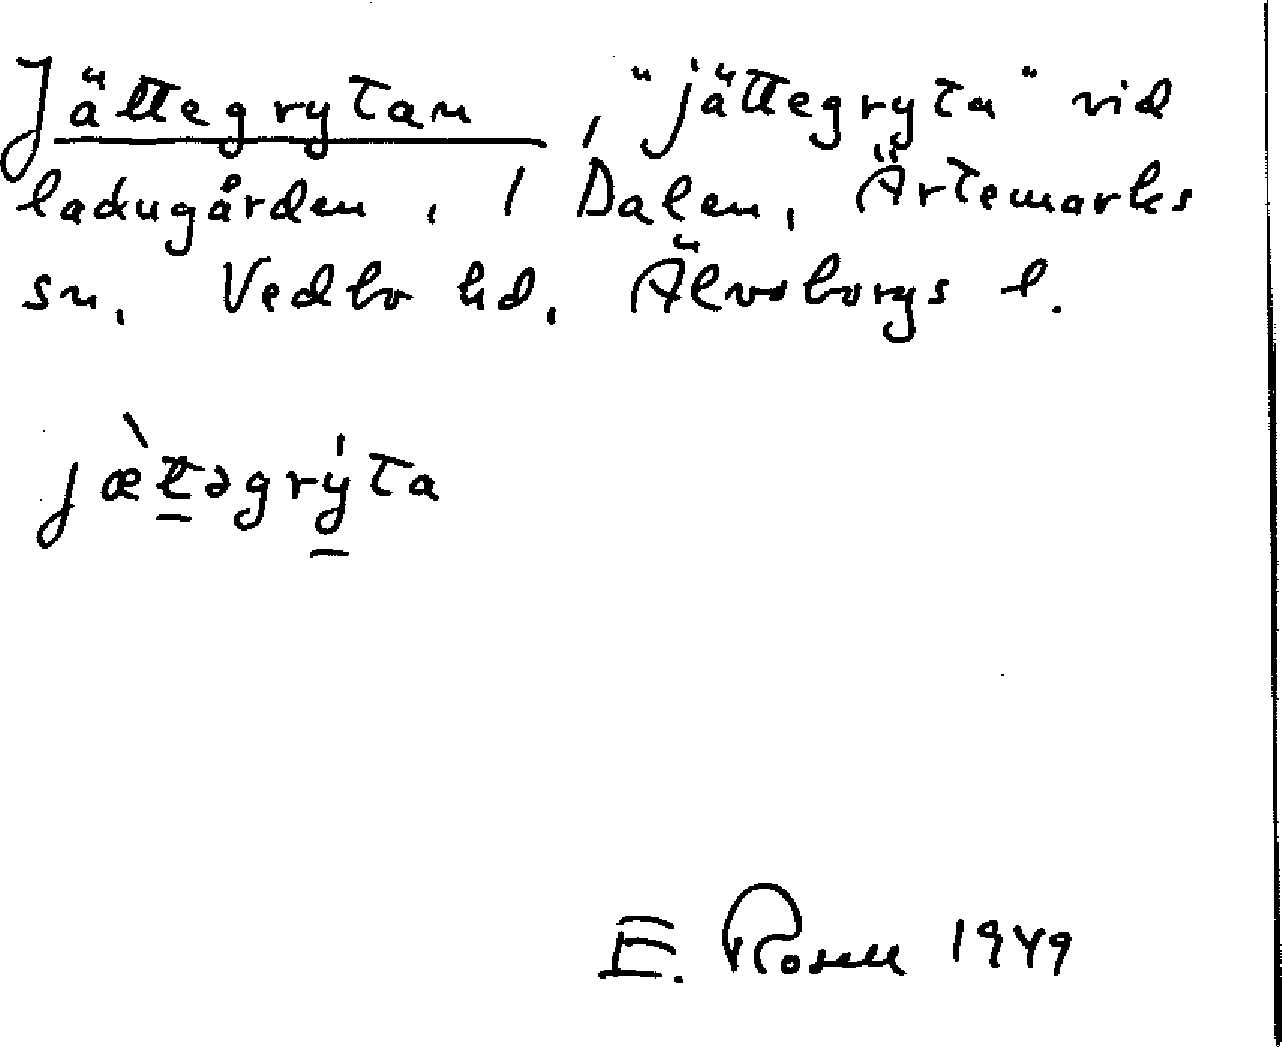 Jättegrytan, "jättegryta" vid
ladugården, 1 Dalen, Ärtemarks
sn, Vedbo hd, Älvsborgs l.
jæ̀t̲əgrý̲ta
E. Rosell 1949